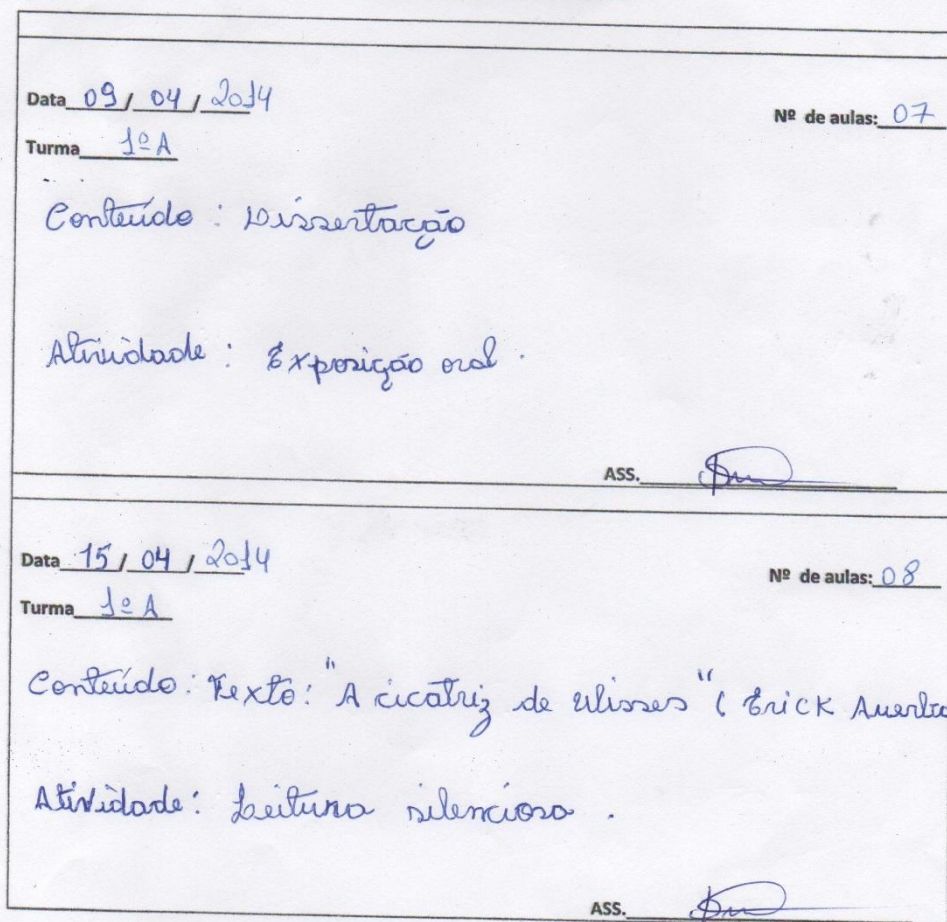 Data 09 / 04 / 2014
Nº de aulas: 07
Turma 1º A
Conteúdo : Dissertação
Atividade : Exposição oral .
ASS.
Data 15 / 04 / 2014
Nº de aulas: 08
Turma 1º A
Conteúdo: Texto: "A cicatriz de Ulisses" ( Erick
Atividade: Leitura silenciosa .
ASS.